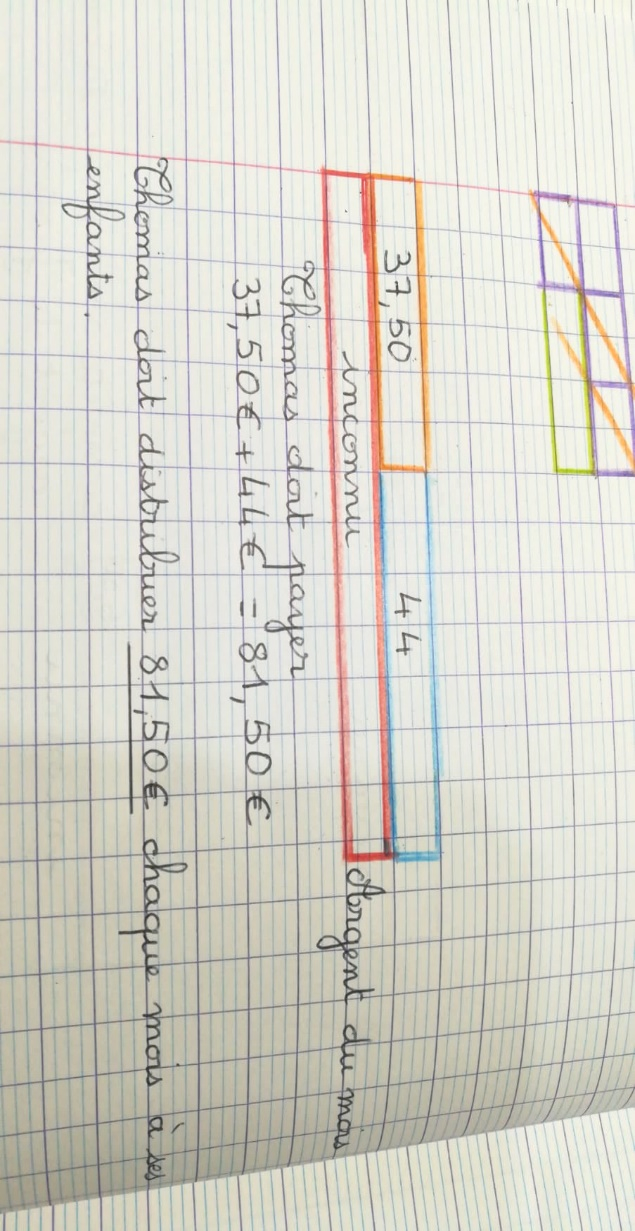 37,50 44
inconnu Argent du mois
Thomas doit payer
37,50€ + 44€ = 81,50€
Thomas doit distribuer 81,50€ chaque mois à ses
enfants.